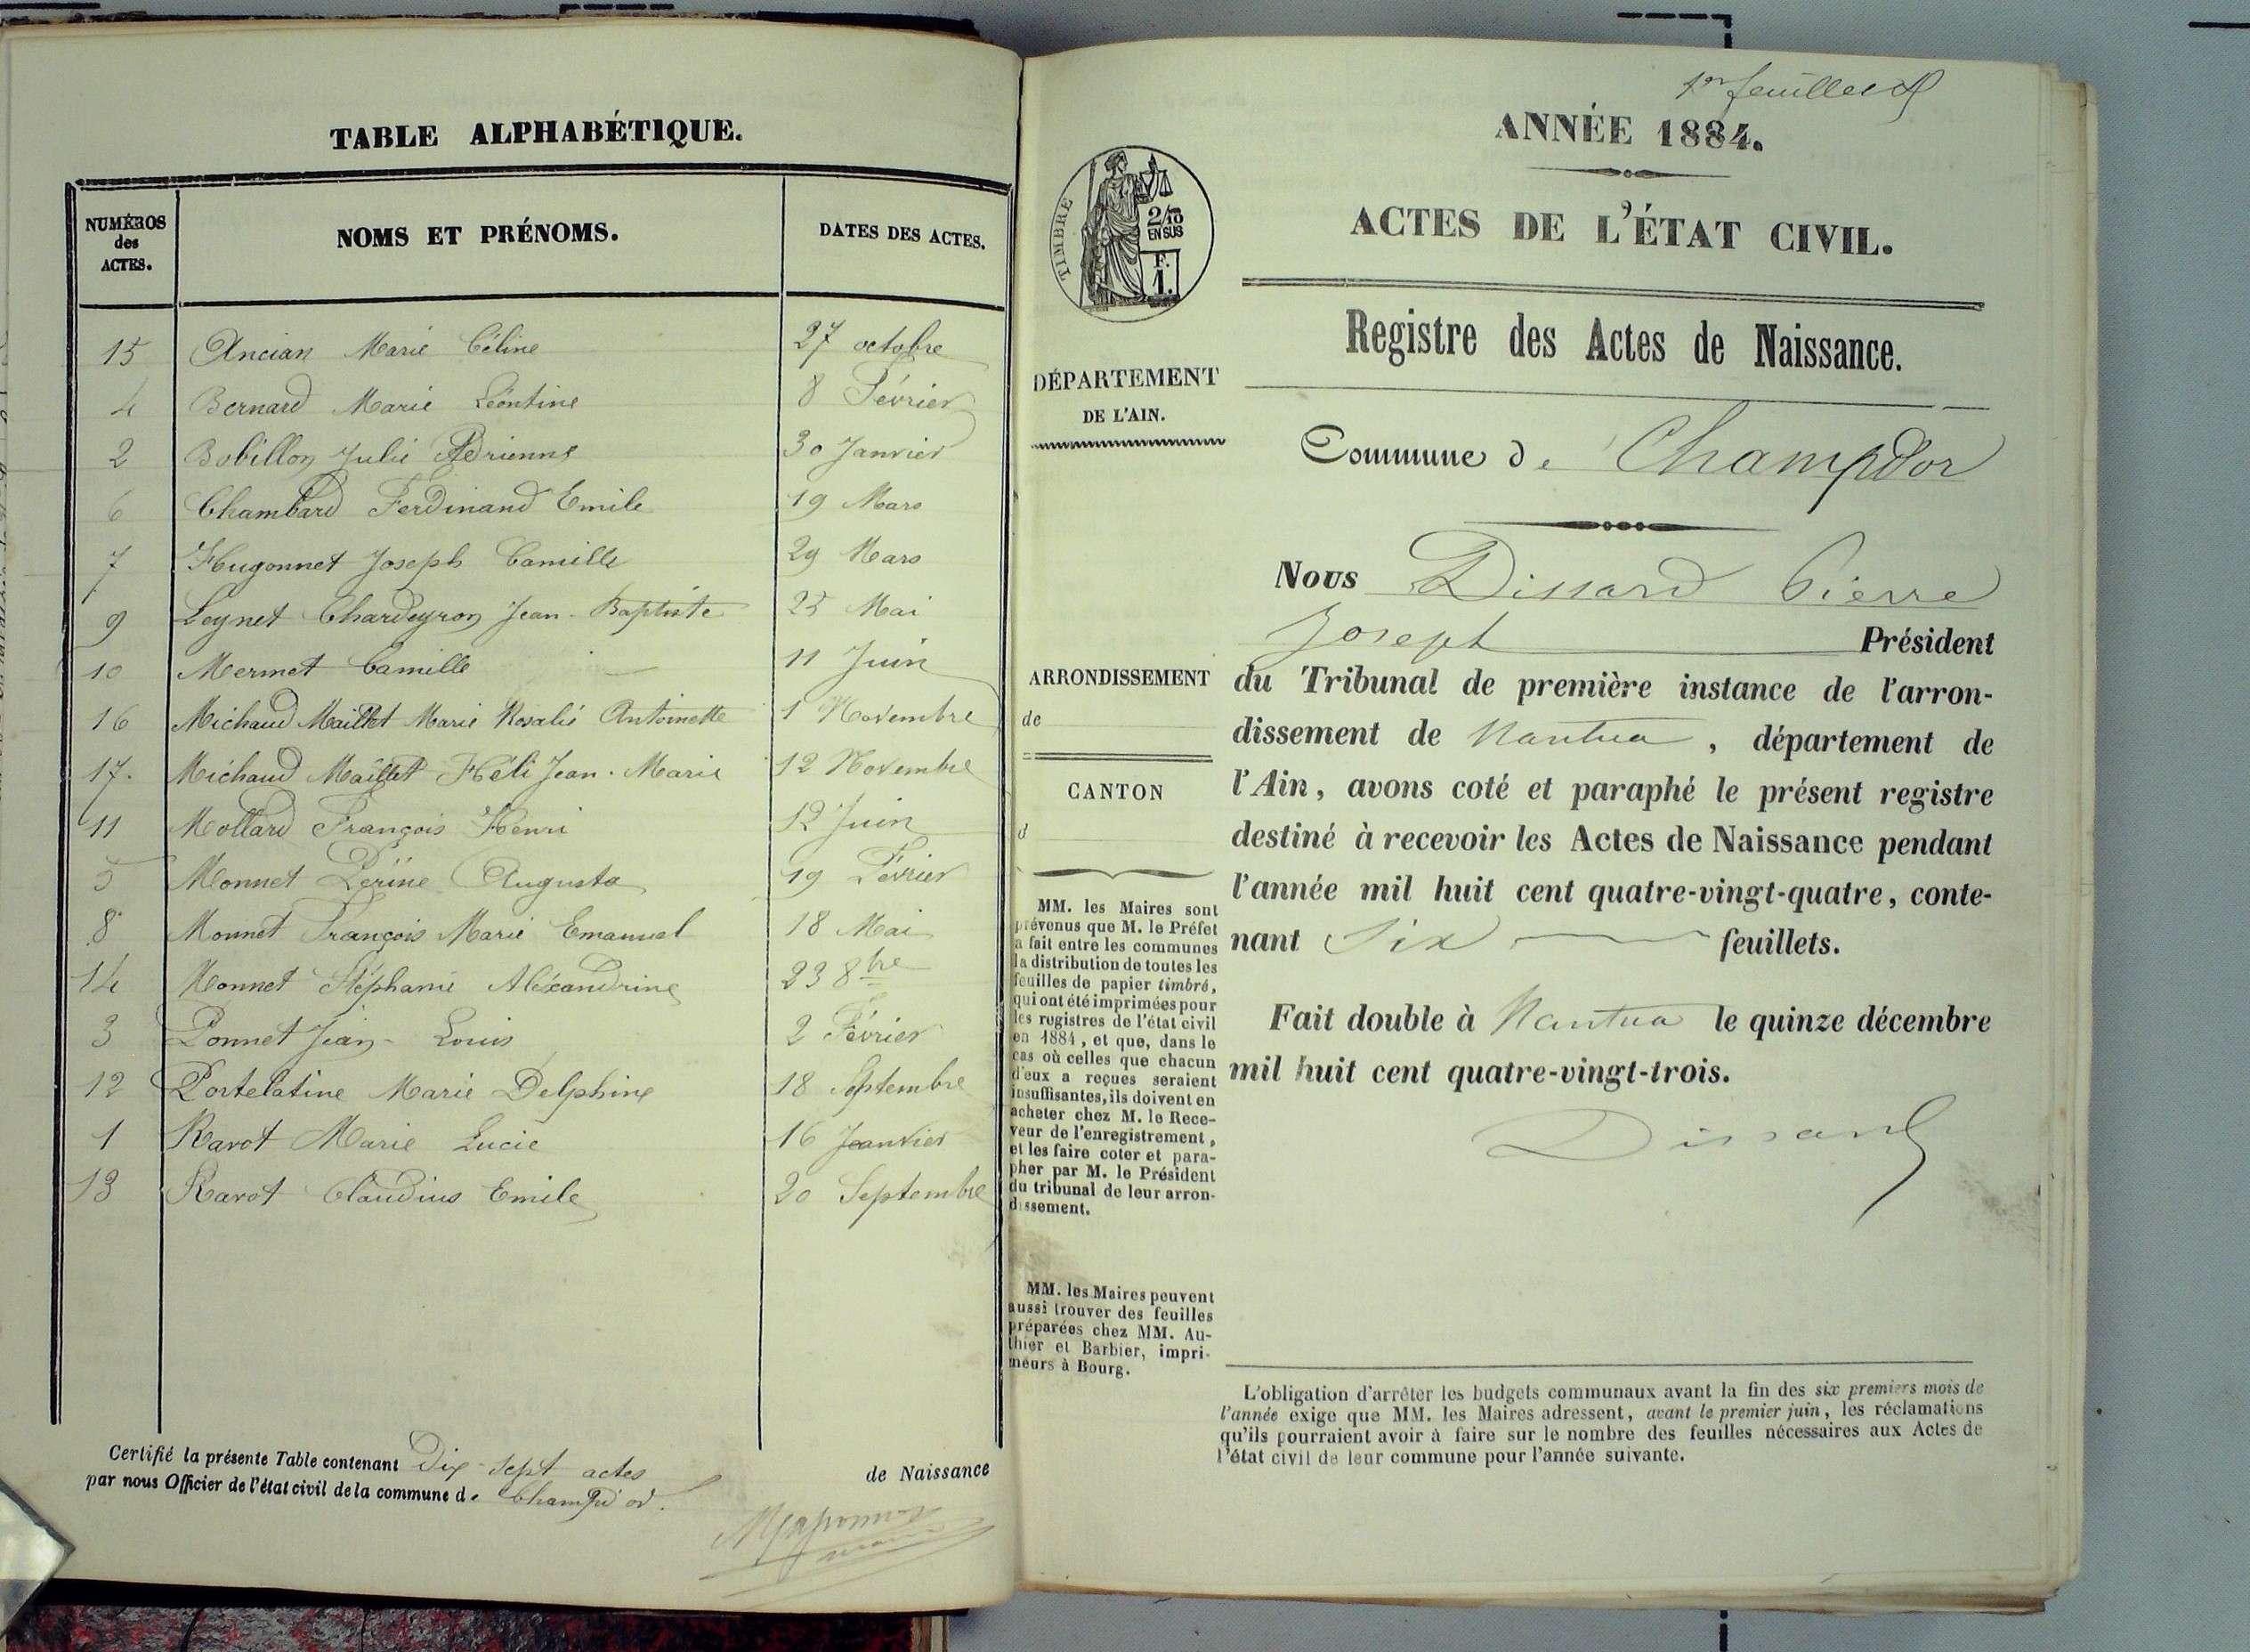 TABLE ALPHABÉTIQUE.
NUMÉROS des ACTES. NOMS ET PRÉNOMS. DATES DES ACTES.
15 Ancian Marie Céline 27 octobre
4 Bernard Marie Léontine 8 Février
2 Bobillon Julie Adrienne 30 Janvier
6 Chambard Ferdinand Emile 19 Mars
7 Hugonnet Joseph Camille 29 Mars
9 Leynet Chardeyron Jean-Baptiste 25 Mai
10 Mermet Camille 11 Juin
16 Michaud Maillet Marie Rosalie Antoinette 1 Novembre
17. Michaud Maillet Héli Jean-Marie 12 Novembre
11 Mottard François Henri 12 Juin
5 Monnet Perine Augusta 19 Février
8 Monnet François Marie Emanuel 18 Mai
14 Monnet Stéphanie Aléxandrine 23 8bre
3 Ponnet Jean-Louis 2 Février
12 Portelatine Marie Delphine 18 Septembre
1 Ravot Marie Lucie 16 Janvier
13 Ravot Claudius Emile 20 Septembre
Certifié la présente Table contenant Dix-sept actes de Naissance
par nous Officier de l'état civil de la commune de Champd'or.
maire
1er feuillet
ANNÉE 1884.
ACTES DE L'ÉTAT CIVIL.
TIMBRE
2/10
EN SUS
F.
1.
Registre des Actes de Naissance.
DÉPARTEMENT
DE L'AIN.
Commune de Champdor
Nous Dissard Pierre
Joseph Président
ARRONDISSEMENT
de
CANTON
d
du Tribunal de première instance de l'arron-
dissement de Nantua, département de
l'Ain, avons coté et paraphé le présent registre
destiné à recevoir les Actes de Naissance pendant
l'année mil huit cent quatre-vingt-quatre, conte-
nant six feuillets.
Fait double à Nantua le quinze décembre
mil huit cent quatre-vingt-trois.
Dissard
MM. les Maires sont
prévenus que M. le Préfet
a fait entre les communes
la distribution de toutes les
feuilles de papier timbré,
qui ont été imprimées pour
les registres de l'état civil
en 1884, et que, dans le
cas où celles que chacun
d'eux a reçues seraient
insuffisantes, ils doivent en
acheter chez M. le Rece-
veur de l'enregistrement,
et les faire coter et para-
pher par M. le Président
du tribunal de leur arron-
dissement.
MM. les Maires peuvent
aussi trouver des feuilles
préparées chez MM. Au-
thier et Barbier, impri-
meurs à Bourg.
L'obligation d'arrêter les budgets communaux avant la fin des six premiers mois de
l'année exige que MM. les Maires adressent, avant le premier juin, les réclamations
qu'ils pourraient avoir à faire sur le nombre des feuilles nécessaires aux Actes de
l'état civil de leur commune pour l'année suivante.